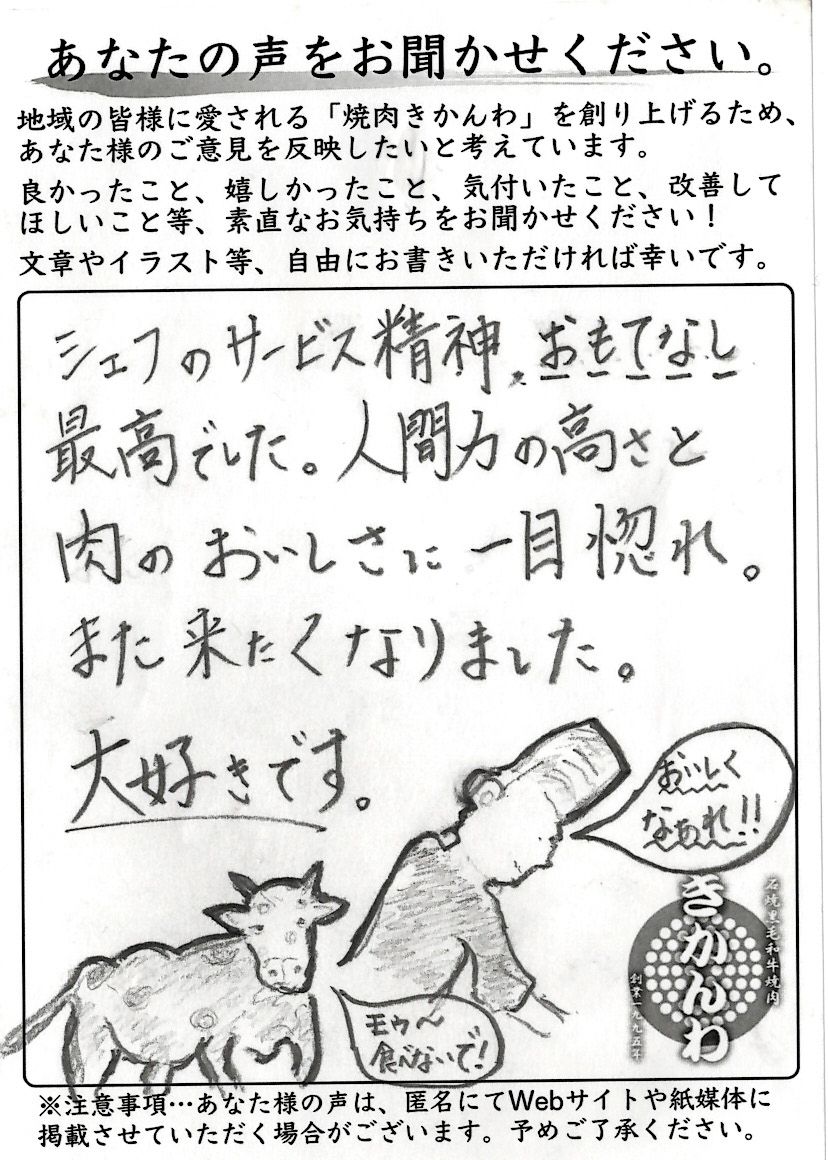 あなたの声をお聞かせください。
地域の皆様に愛される「焼肉きかんわ」を創り上げるため、
あなた様のご意見を反映したいと考えています。
良かったこと、嬉しかったこと、気付いたこと、改善して
ほしいこと等、素直なお気持ちをお聞かせください！
文章やイラスト等、自由にお書きいただければ幸いです。
シェフのサービス精神、おもてなし
最高でした。人間力の高さと
肉のおいしさに一目惚れ。
また来たくなりました。
大好きです。
おいしく
なぁれ!!
モゥ〜
食べないで!
石焼黒毛和牛焼肉
きかんわ
創業一九九五年
※注意事項…あなた様の声は、匿名にてWebサイトや紙媒体に
掲載させていただく場合がございます。予めご了承ください。